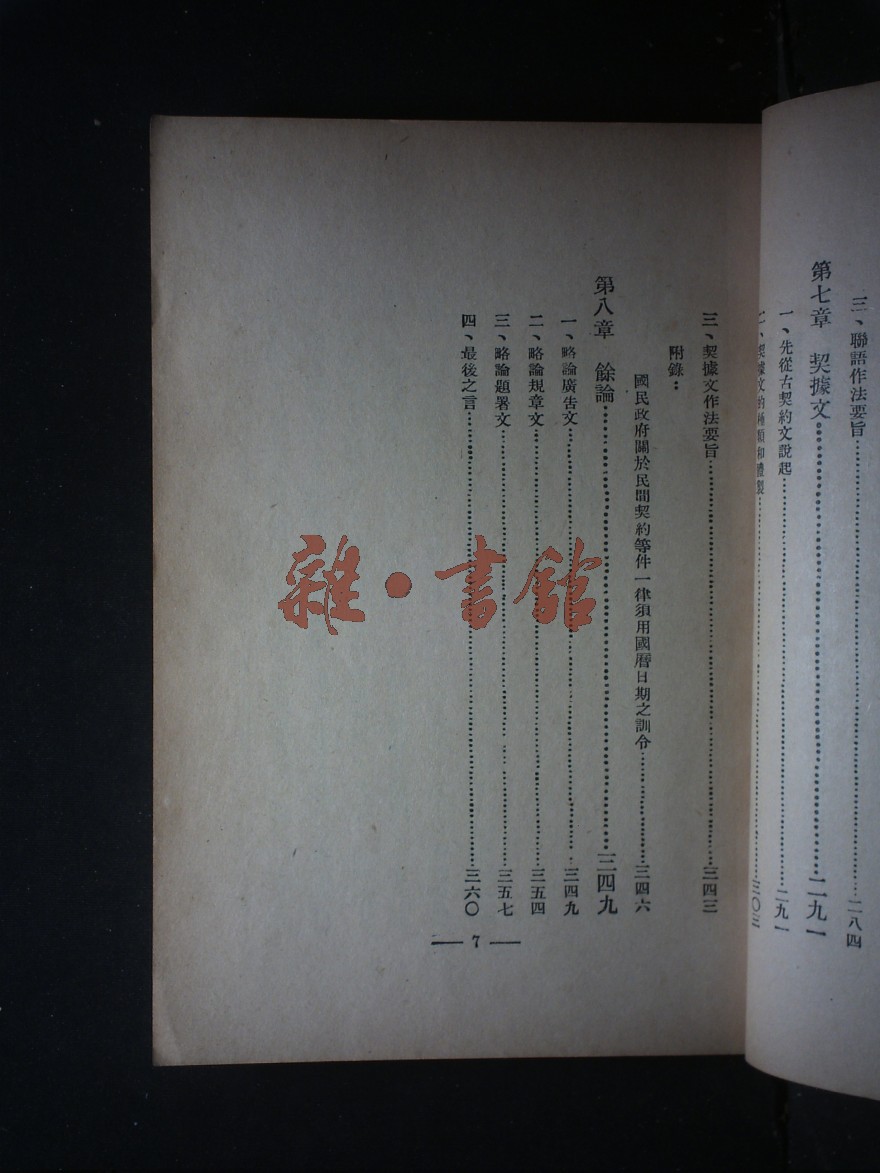 三、聯語作法要旨……二八四
第七章　契據文……二九一
一、先從古契約文說起……二九一
二、契據文的種類和體製……三〇三
三、契據文作法要旨……三四三
附錄：
國民政府關於民間契約等件一律須用國曆日期之訓令……三四六
第八章　餘論……三四九
一、略論廣告文……三四九
二、略論規章文……三五四
三、略論題署文……三五七
四、最後之言……三六〇
— 7 —
雜·書館